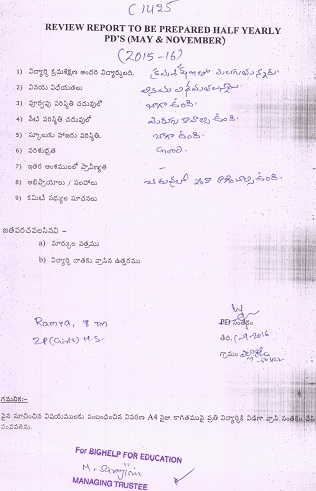 C 1425
REVIEW REPORT TO BE PREPARED HALF YEARLY
PD'S (MAY & NOVEMBER)
(2015-16)
1) విద్యార్థి క్రమశిక్షణ అందరి విద్యార్థులది.
2) వినయ విధేయతలు
3) పూర్వపు పరిస్థితి చదువులో బాగా ఉంది.
4) నేటి పరిస్థితి చదువులో ఉంది.
5) స్కూలుకు హాజరు పరిస్థితి. బాగా ఉంది.
6) పరిశుభ్రత
7) ఇతర అంశములలో ప్రావీణ్యత -
8) అభిప్రాయాలు / సలహాలు చదువులో ఇంకా ఉంది.
9) కమిటీ సభ్యుల సూచనలు
జతపరచవలసినవి -
a) మార్కుల పత్రము
b) విద్యార్థి దాతకు వ్రాసిన ఉత్తరము
PD సంతకం
Ramya, 8 th
ZP(Girls) H.S.
తేది -9-2016
గ్రామం
గమనిక:-
పైన సూచించిన విషయములకు సంబంధించిన వివరణ A4 సైజు కాగితముపై ప్రతి విద్యార్థికి విడిగా వ్రాసి సంతకం చేసి
పంపవలెను.
For BIGHELP FOR EDUCATION
MANAGING TRUSTEE